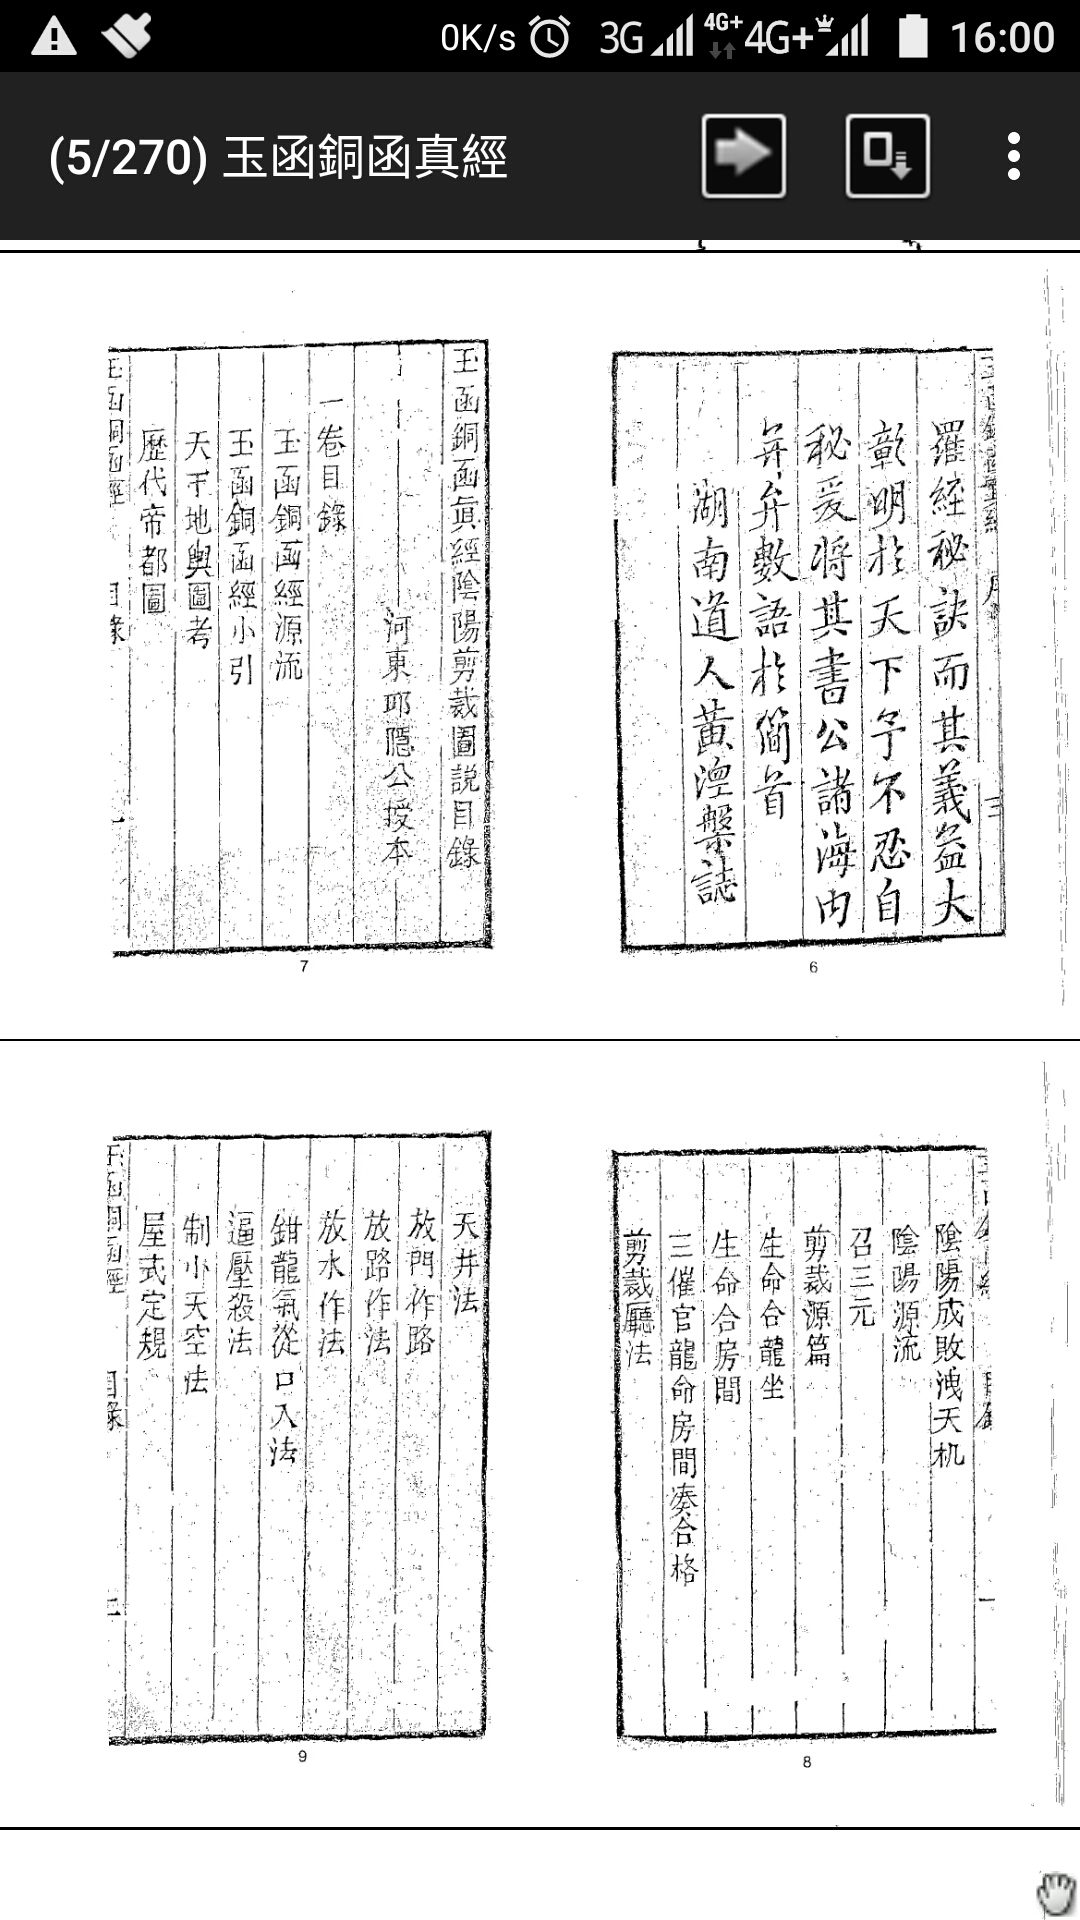 0K/s 3G 4G+ 4G+ 16:00
(5/270) 玉函銅函真經
羅經秘訣而其義益大
彰明於天下予不忍自
秘爰將其書公諸海內
弁數語於簡首
湖南道人黃澄槃誌
6
玉函銅函眞經陰陽剪裁圖説目錄
河東邱隱公授本
一卷目錄
玉函銅函經源流
玉函銅函經小引
天下地輿圖考
歷代帝都圖
玉函銅函經 目錄 一
7
陰陽成敗洩天机
陰陽源流
召三元
剪裁源篇
生命合龍坐
生命合房間
三催官龍命房間凑合格
剪裁廳法
8
天井法
放門作路
放路作法
放水作法
鉗龍氣從口入法
逼壓殺法
制小天空法
屋式定規
玉函銅函經 目錄 二
9